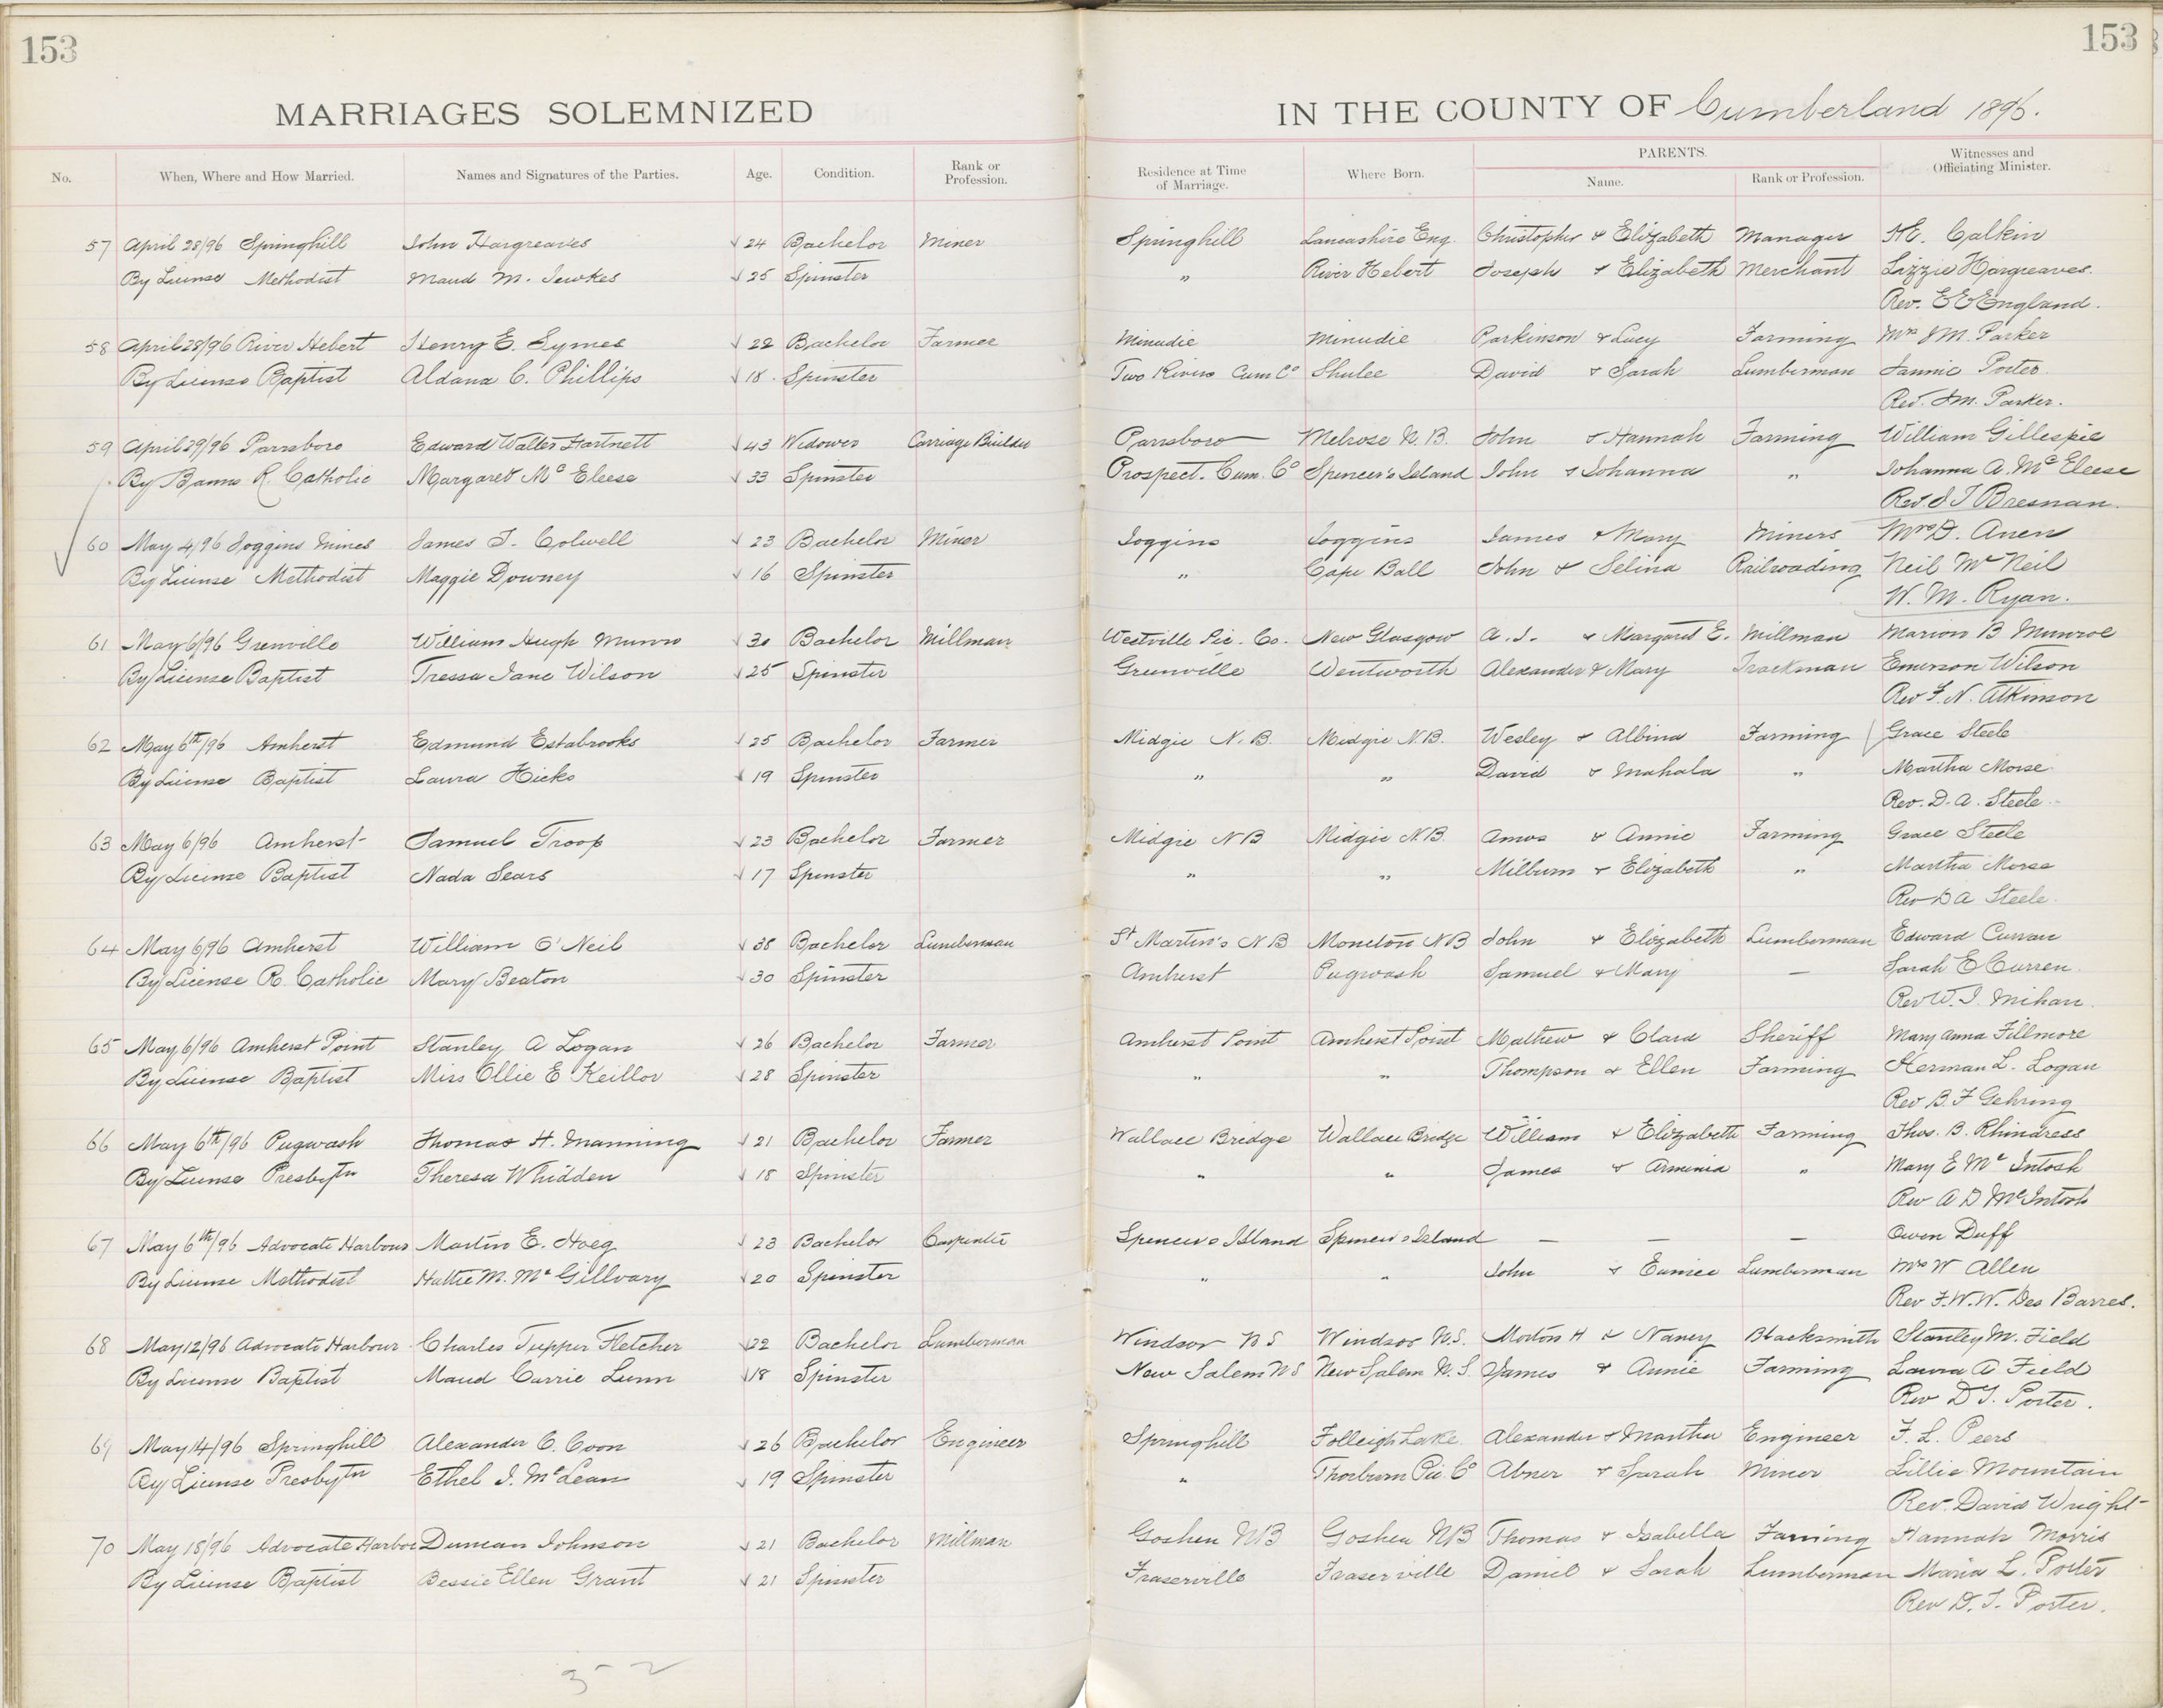 153
153
MARRIAGES SOLEMNIZED IN THE COUNTY OF Cumberland 1896.
No. When, Where and How Married. Names and Signatures of the Parties. Age. Condition. Rank or Profession. Residence at Time of Marriage. Where Born. PARENTS. Name. Rank or Profession. Witnesses and Officiating Minister.
57 April 28/96 Springhill John Hargreaves 24 Bachelor Miner Springhill Lancashire Eng. Christopher & Elizabeth Manager H.E. Calkin
By License Methodist Maud M. Jewkes 25 Spinster " River Hebert Joseph & Elizabeth Merchant Lizzie Hargreaves.
Rev. E E England.
58 April 28/96 River Hebert Henry E. Symes 22 Bachelor Farmer Minudie Minudie Parkinson & Lucy Farming Mrs J M. Parker
By License Baptist Aldana C. Phillips 18 Spinster Two Rivers Cum Co Shulee David & Sarah Lumberman Fannie Porter.
Rev. J M. Parker.
59 April 29/96 Parrsboro Edward Walter Hartnett 43 Widower Carriage Builder Parrsboro Melrose N.B. John & Hannah Farming William Gillespie
By Banns R. Catholic Margaret Mc Eleese 33 Spinster Prospect. Cum. Co Spencer's Island John & Johanna " Johanna A. Mc Eleese
Rev J T Bresnan.
60 May 4/96 Joggins Mines James T. Colwell 23 Bachelor Miner Joggins Joggins James & Mary Miners Mrs D. Anen
By License Methodist Maggie Downey 16 Spinster " Cape Ball John & Selina Railroading Neil Mc Neil
W. M. Ryan.
61 May 6/96 Grenville William Hugh Munro 30 Bachelor Millman Westville Pic. Co. New Glasgow A. J. & Margaret E. Millman Marion B Munroe
By License Baptist Tressa Jane Wilson 25 Spinster Greenville Wentworth Alexander & Mary Trackman Emerson Wilson
Rev F. N. Atkinson
62 May 6th/96 Amherst Edmund Estabrooks 25 Bachelor Farmer Midgie N.B. Midgie N.B. Wesley & Albina Farming Grace Steele
By License Baptist Laura Hicks 19 Spinster " " David & Mahala " Martha Morse
Rev. D. A. Steele
63 May 6/96 Amherst Samuel Troop 23 Bachelor Farmer Midgie N B Midgie N.B. Amos & Annie Farming Grace Steele
By License Baptist Nada Sears 17 Spinster " " Milburn & Elizabeth " Martha Morse
Rev D A Steele.
64 May 6/96 Amherst William O'Neil 38 Bachelor Lumberman St Martin's N B Moncton N B John & Elizabeth Lumberman Edward Curran
By License R. Catholic Mary Beaton 30 Spinster Amherst Pugwash Samuel & Mary — Sarah E Curren.
Rev W. J. Mihan.
65 May 6/96 Amherst Point Stanley A Logan 26 Bachelor Farmer Amherst Point Amherst Point Mathew & Clara Sheriff Mary Anna Fillmore
By License Baptist Miss Ollie E Keillor 28 Spinster " " Thompson & Ellen Farming Herman L. Logan
Rev B. F Gehring
66 May 6th/96 Pugwash Thomas H. Manning 21 Bachelor Farmer Wallace Bridge Wallace Bridge William & Elizabeth Farming Thos. B. Rhindress
By License Presbytn Theresa Whidden 18 Spinster " " James & Arminia " Mary E Mc Intosh
Rev A D McIntosh
67 May 6th/96 Advocate Harbour Martin E. Hoeg 23 Bachelor Carpenter Spencers Island Spencers Island — — — Owen Duff
By License Methodist Hattie M. Mc Gillvary 20 Spinster " " John & Eunice Lumberman Mrs W Allen
Rev F. W. W. Des Barres.
68 May 12/96 Advocate Harbour Charles Tupper Fletcher 22 Bachelor Lumberman Windsor N S Windsor N.S. Morton H & Nancy Blacksmith Stanley M. Field
By License Baptist Maud Carrie Lunn 18 Spinster New Salem N S New Salem N. S. James & Annie Farming Laura A Field
Rev D T. Porter.
69 May 14/96 Springhill Alexander C. Coon 26 Bachelor Engineer Springhill Folleigh Lake Alexander & Martha Engineer F. L. Peers
By License Presbytn Ethel J. McLean 19 Spinster " Thorburn Pic Co Abner & Sarah Miner Lillie Mountain
Rev. David Wright
70 May 18/96 Advocate Harbor Duncan Johnson 21 Bachelor Millman Goshen N B Goshen N B Thomas & Isabella Farming Hannah Morris
By License Baptist Bessie Ellen Grant 21 Spinster Fraserville Fraserville Daniel & Sarah Lumberman Maria L. Porter
Rev D. T. Porter.
3 - 2